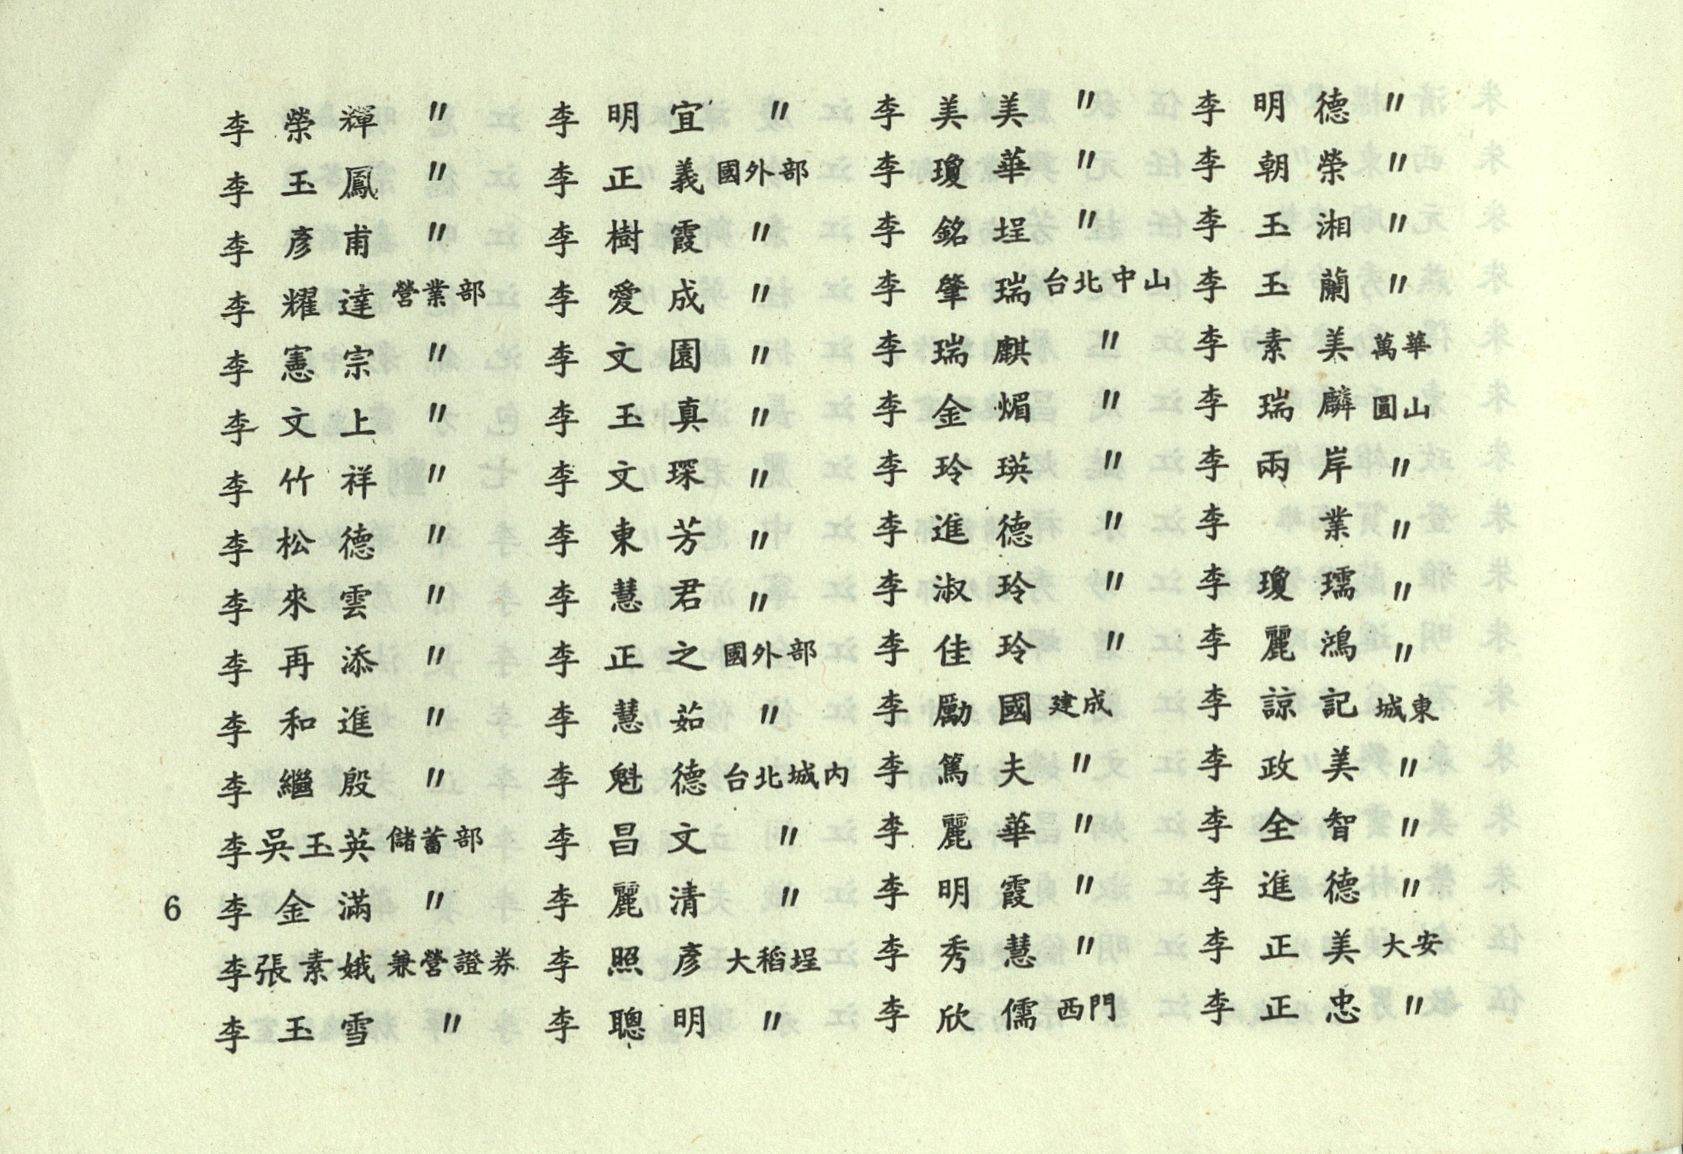 李榮輝 〃
李玉鳳 〃
李彥甫 〃
李耀達 營業部
李憲宗 〃
李文上 〃
李竹祥 〃
李松德 〃
李來雲 〃
李再添 〃
李和進 〃
李繼殷 〃
李吳玉英 儲蓄部
李金滿 〃
李張素娥 兼營證券
李玉雪 〃
李明宜 〃
李正義 國外部
李樹霞 〃
李愛成 〃
李文園 〃
李玉真 〃
李文琛 〃
李東芳 〃
李慧君 〃
李正之 國外部
李慧茹 〃
李魁德 台北城內
李昌文 〃
李麗清 〃
李照彥 大稻埕
李聰明 〃
李美美 〃
李瓊華 〃
李銘埕 〃
李肇瑞 台北中山
李瑞麒 〃
李金媚 〃
李玲瑛 〃
李進德 〃
李淑玲 〃
李佳玲 〃
李勵國 建成
李篤夫 〃
李麗華 〃
李明霞 〃
李秀慧 〃
李欣儒 西門
李明德 〃
李朝榮 〃
李玉湘 〃
李玉蘭 〃
李素美 萬華
李瑞麟 圓山
李兩岸 〃
李業 〃
李瓊瓀 〃
李麗鴻 〃
李諒記 城東
李政美 〃
李全智 〃
李進德 〃
李正美 大安
李正忠 〃
6